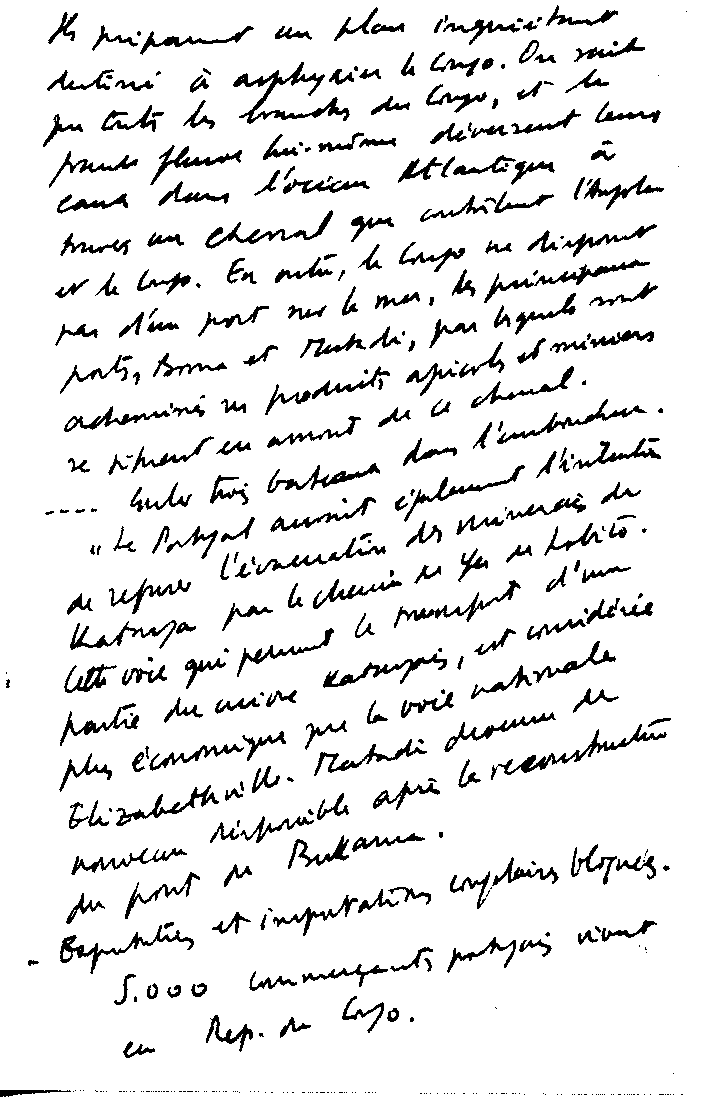 Ils préparent un plan inquiétant
destiné à asphyxier le Congo. On sait
que toutes les branches du Congo, et le
grand fleuve lui-même déversent leurs
eaux dans l'océan Atlantique à
travers un chenal que contrôlent l'Angola
et le Congo. En outre, le Congo ne disposant
pas d'un port sur la mer, les principaux
ports, Boma et Matadi, par lesquels sont
acheminés ses produits agricoles et miniers
se situent en amont de ce chenal.
---- trois bateaux dans l'embouchure.
"Le Portugal aurait également l'intention
de refuser l'évacuation des minerais du
Katanga par le chemin de fer de Lobito.
Cette voie qui permet le transport d'une
partie du cuivre katangais, est considérée
plus économique que la voie nationale
Elizabethville. Matadi devenue de
nouveau disponible après la reconstruction
du pont de Bukama.
- Exportations et importations congolaises bloquées.
5.000 commerçants portugais vivent
en Rep. du Congo.